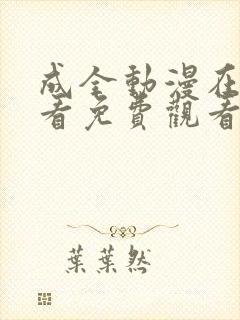 成全動漫在
看免費觀看
葉葉然